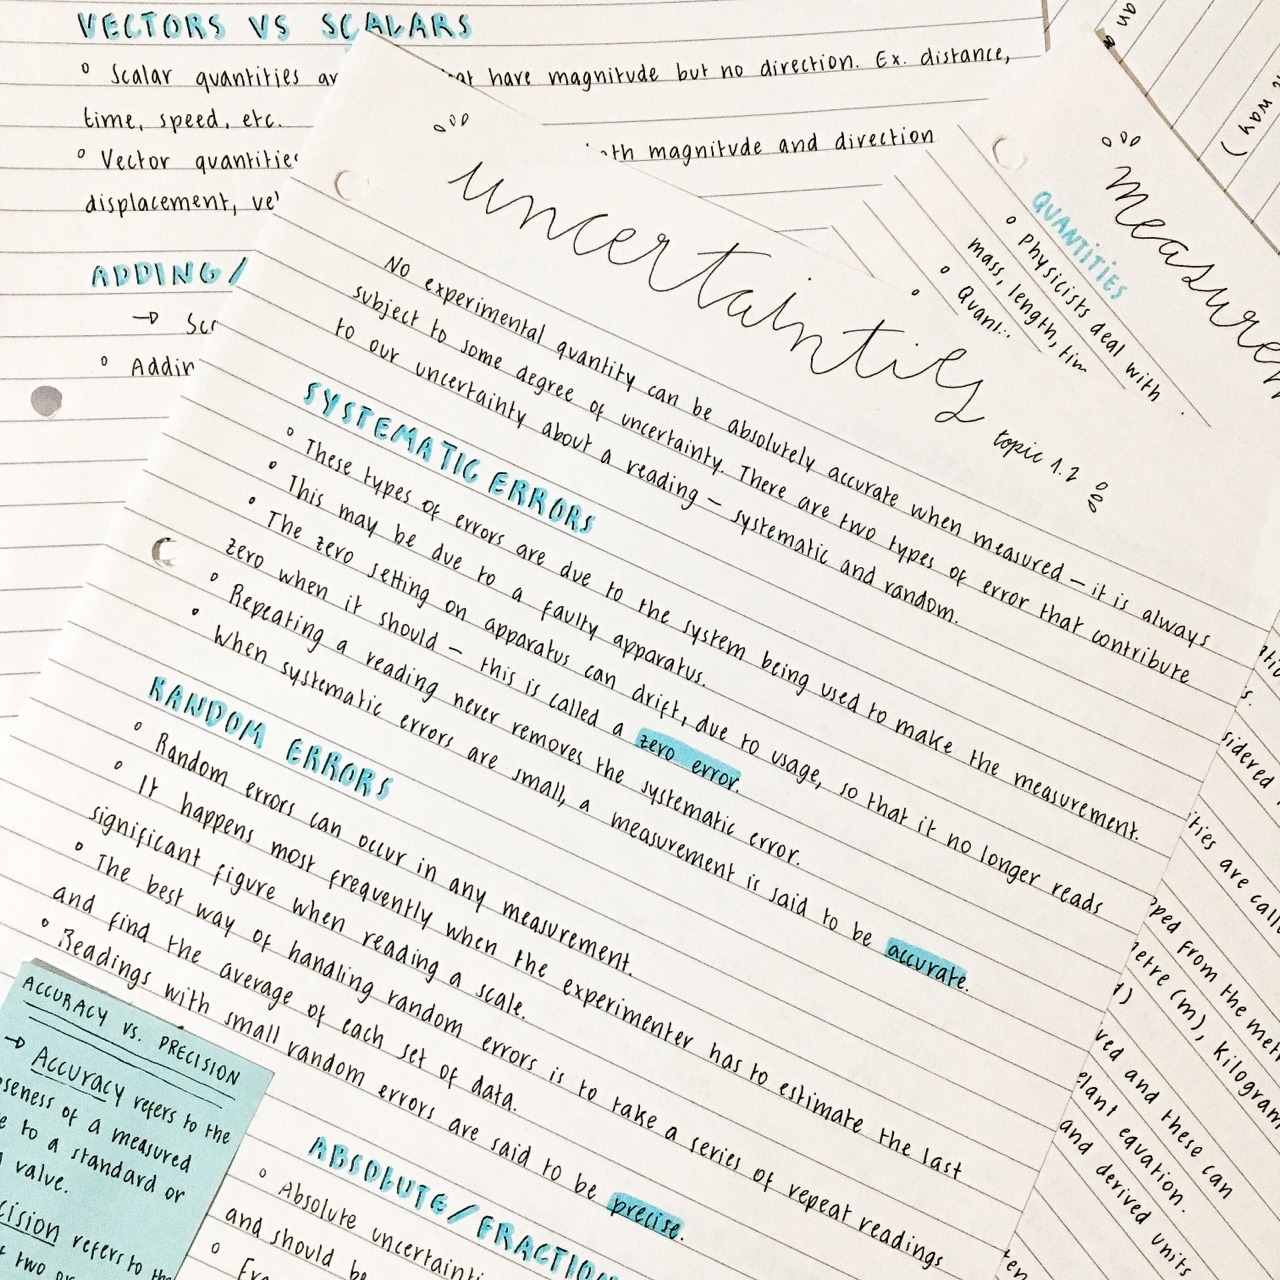 VECTORS VS SCALARS
° Scalar quantities are that have magnitude but no direction. Ex. distance,
time, speed, etc.
° Vector quantities both magnitude and direction
displacement,
ADDING/
→
°
uncertainties topic 1.2
No experimental quantity can be absolutely accurate when measured – it is always
subject to some degree of uncertainty. There are two types of error that contribute
to our uncertainty about a reading – systematic and random.
SYSTEMATIC ERRORS
° These types of errors are due to the system being used to make the measurement.
° This may be due to a faulty apparatus.
° The zero setting on apparatus can drift, due to usage, so that it no longer reads
zero when it should – this is called a zero error.
° Repeating a reading never removes the systematic error.
° When systematic errors are small, a measurement is said to be accurate.
RANDOM ERRORS
° Random errors can occur in any measurement.
° It happens most frequently when the experimenter has to estimate the last
significant figure when reading a scale.
° The best way of handling random errors is to take a series of repeat readings
and find the average of each set of data.
° Readings with small random errors are said to be precise.
ABSOLUTE/
° Absolute
and should be
°
ACCURACY VS. PRECISION
→ Accuracy refers to the
of a measured
to a standard or
value.
refers to the
two
QUANTITIES
° Physicists deal with
mass, length,
°
way)
are
from the
(m), kilogram
and these can
equation.
and derived units